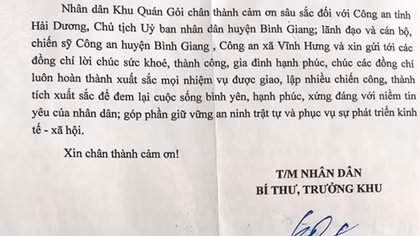 Nhân dân Khu Quán Gỏi chân thành cảm ơn sâu sắc đối với Công an tỉnh
Hải Dương, Chủ tịch Uỷ ban nhân dân huyện Bình Giang; lãnh đạo và cán bộ,
chiến sỹ Công an huyện Bình Giang , Công an xã Vĩnh Hưng và xin gửi tới các
đồng chí lời chúc sức khoẻ, thành công, gia đình hạnh phúc, chúc các đồng chí
luôn hoàn thành xuất sắc mọi nhiệm vụ được giao, lập nhiều chiến công, thành
tích xuất sắc để đem lại cuộc sống bình yên, hạnh phúc, xứng đáng với niềm tin
yêu của nhân dân; góp phần giữ vững an ninh trật tự và phục vụ sự phát triển kinh
tế - xã hội.
Xin chân thành cảm ơn!
T/M NHÂN DÂN
BÍ THƯ, TRƯỞNG KHU